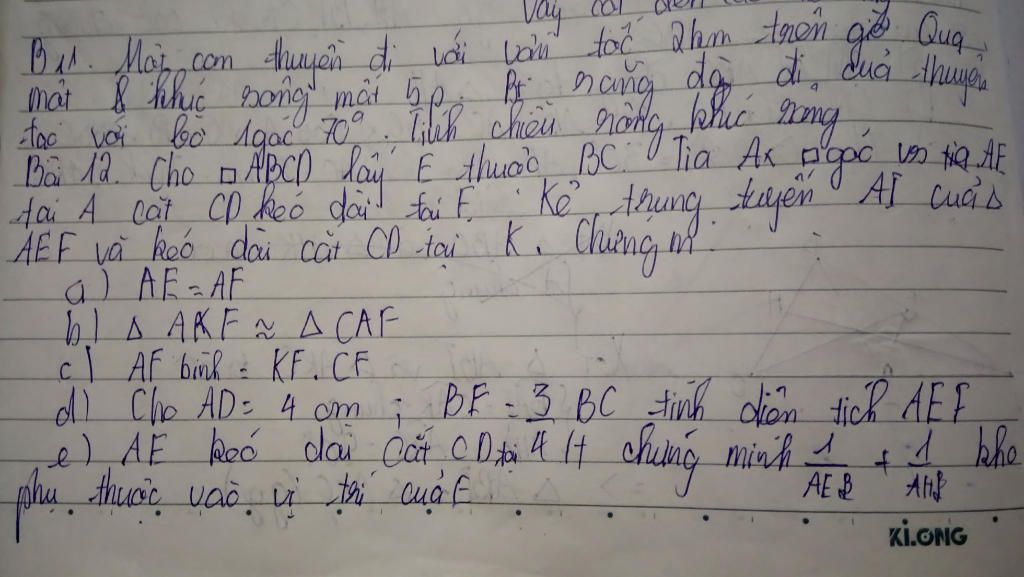 Vậy cột điện
B11. Một con thuyền đi với vận tốc 2km trên giờ Qua
một khúc sông mất 5p. Bt rằng đg đi của thuyền
tạo với bờ 1góc 70°. Tính chiều rộng khúc sông
Bài 12. Cho □ABCD lấy E thuộc BC. Tia Ax □góc vs tia AE
tại A cắt CD kéo dài tại F. Kẻ trung tuyến AI của Δ
AEF và kéo dài cắt CD tại K. Chứng m
a) AE = AF
b) Δ AKF ≈ Δ CAF
c) AF bình = KF. CF
d) Cho AD = 4 cm ; BE = 3/4 BC tính diện tích AEF
e) AE kéo dài cắt CD tại H chứng minh 1/AE2 + 1/AH2 kho
phụ thuộc vào vị trí của E
Ki.ONG